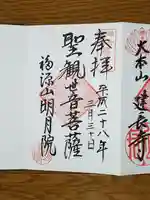 奉拝
平成二十八年
三月三十日
聖観世音菩薩
福源山明月院
大本山建長寺